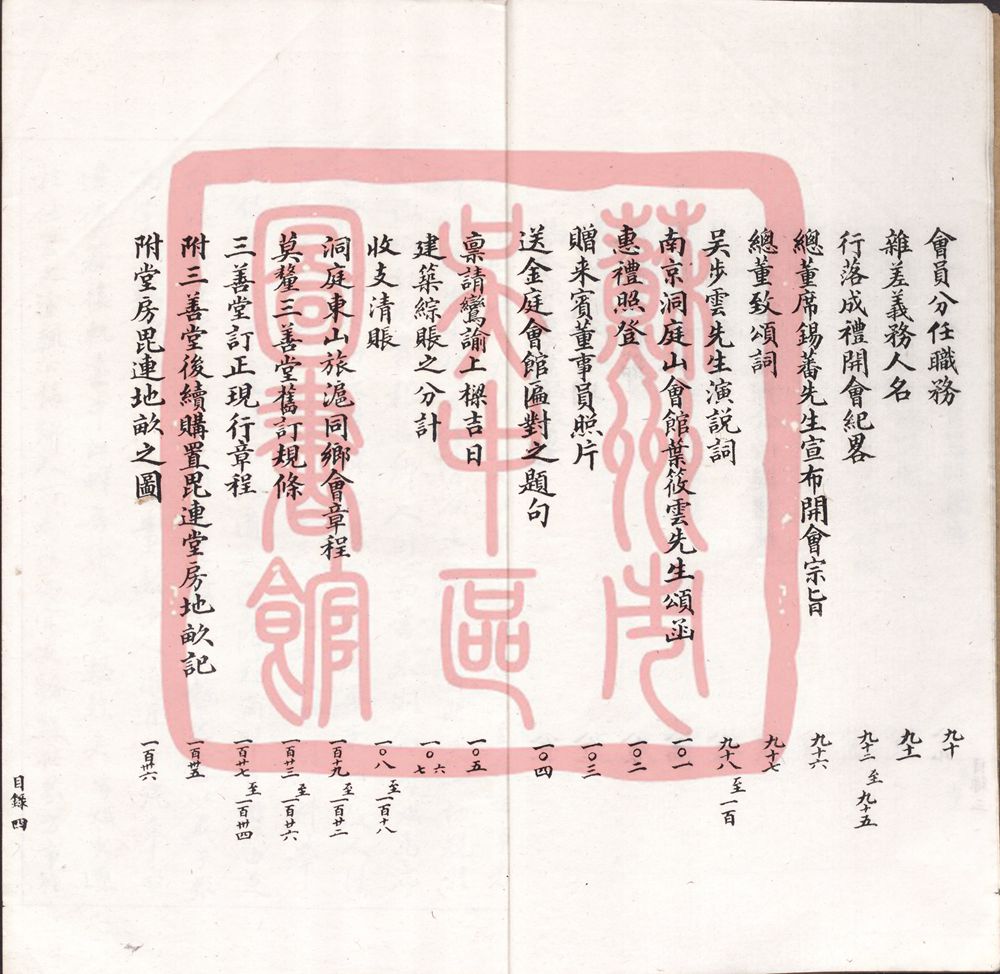 會員分任職務 九十
雜差義務人名 九十一
行落成禮開會紀畧 九十二至九十五
總董席錫蕃先生宣布開會宗旨 九十六
總董致頌詞 九十七
吳步雲先生演說詞 九十八至一百
南京洞庭山會館葉筱雲先生頌函 一〇一
惠禮照登 一〇二
贈來賓董事員照片 一〇三
送金庭會館匾對之題句 一〇四
稟請鸞諭上樑吉日 一〇五
建築綜賬之分計 一〇六七
收支清賬 一〇八至一百十八
洞庭東山旅滬同鄉會章程 一百十九至一百廿二
莫釐三善堂舊訂規條 一百廿三至一百廿六
三善堂訂正現行章程 一百廿七至一百卅四
附三善堂後續購置毘連堂房地畝記 一百卅五
附堂房毘連地畝之圖 一百卅六
目錄 四
蘇州市
吳中區
圖書館